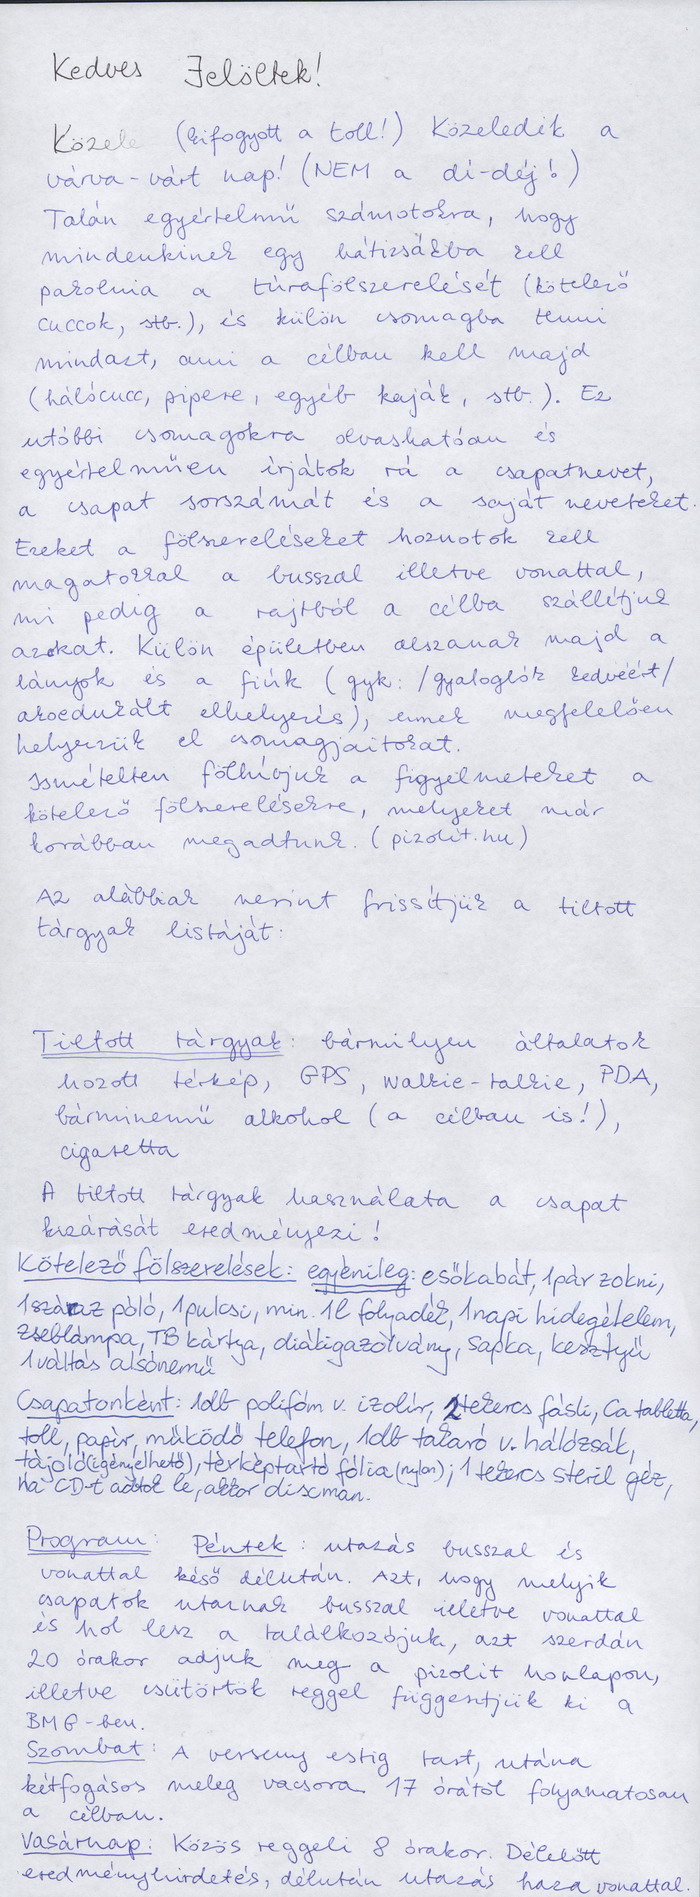 Kedves Jelöltek!
Közele (kifogyott a toll!) Közeledik a
várva-várt nap! (NEM a di-déj!)
Talán egyértelmű számotokra, hogy
mindenkinek egy hátizsákba kell
pakolnia a túrafölszerelését (kötelező
cuccok, stb.), és külön csomagba tenni
mindazt, ami a célban kell majd
(hálócucc, pipere, egyéb kaják, stb.). Ez
utóbbi csomagokra olvashatóan és
egyértelműen írjátok rá a csapatnevet,
a csapat sorszámát és a saját neveteket.
Ezeket a fölszereléseket hoznotok kell
magatokkal a busszal illetve vonattal,
mi pedig a rajtból a célba szállítjuk
azokat. Külön épületben alszanak majd a
lányok és a fiúk (gyk: /gyaloglók kedvéért/
akoedukált elhelyezés), ennek megfelelően
helyezzük el csomagjaitokat.
Ismételten fölhívjuk a figyelmeteket a
kötelező fölszerelésekre, melyeket már
korábban megadtunk. (pizolit.hu)
Az alábbiak szerint frissítjük a tiltott
tárgyak listáját:
Tiltott tárgyak: bármilyen általatok
hozott térkép, GPS, walkie-talkie, PDA,
bárminemű alkohol (a célban is!),
cigaretta
A tiltott tárgyak használata a csapat
kizárását eredményezi!
Kötelező fölszerelések: egyénileg: esőkabát, 1pár zokni,
1száraz póló, 1pulcsi, min. 1l folyadék, 1napi hidegételem,
zseblámpa, TB kártya, diákigazolvány, sapka, kesztyű
1váltás alsónemű
Csapatonként: 1db polifóm v. izolír, 2tekercs fásli, Ca tabletta,
toll, papír, működő telefon, 1db takaró v. hálózsák,
tájoló(igényelhető), térképtartó fólia(nylon); 1 tekercs steril géz,
ha CD-t adtok le, akkor discman.
Program: Péntek: utazás busszal és
vonattal késő délután. Azt, hogy melyik
csapatok utaznak busszal illetve vonattal
és hol lesz a találkozójuk, azt szerdán
20 órakor adjuk meg a pizolit honlapon,
illetve csütörtök reggel függesztjük ki a
BMG-ben.
Szombat: A verseny estig tart, utána
kétfogásos meleg vacsora 17 órától folyamatosan
a célban.
Vasárnap: Közös reggeli 8 órakor. Délelőtt
eredményhirdetés, délután utazás haza vonattal.